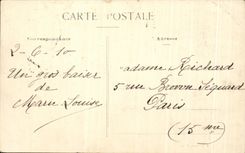 CARTE POSTALE
Correspondance
Adresse
2-6-10
Un gros baiser
de
Marie Louise
Madame Richard
5 rue Brown Séquard
Paris
(15 me)